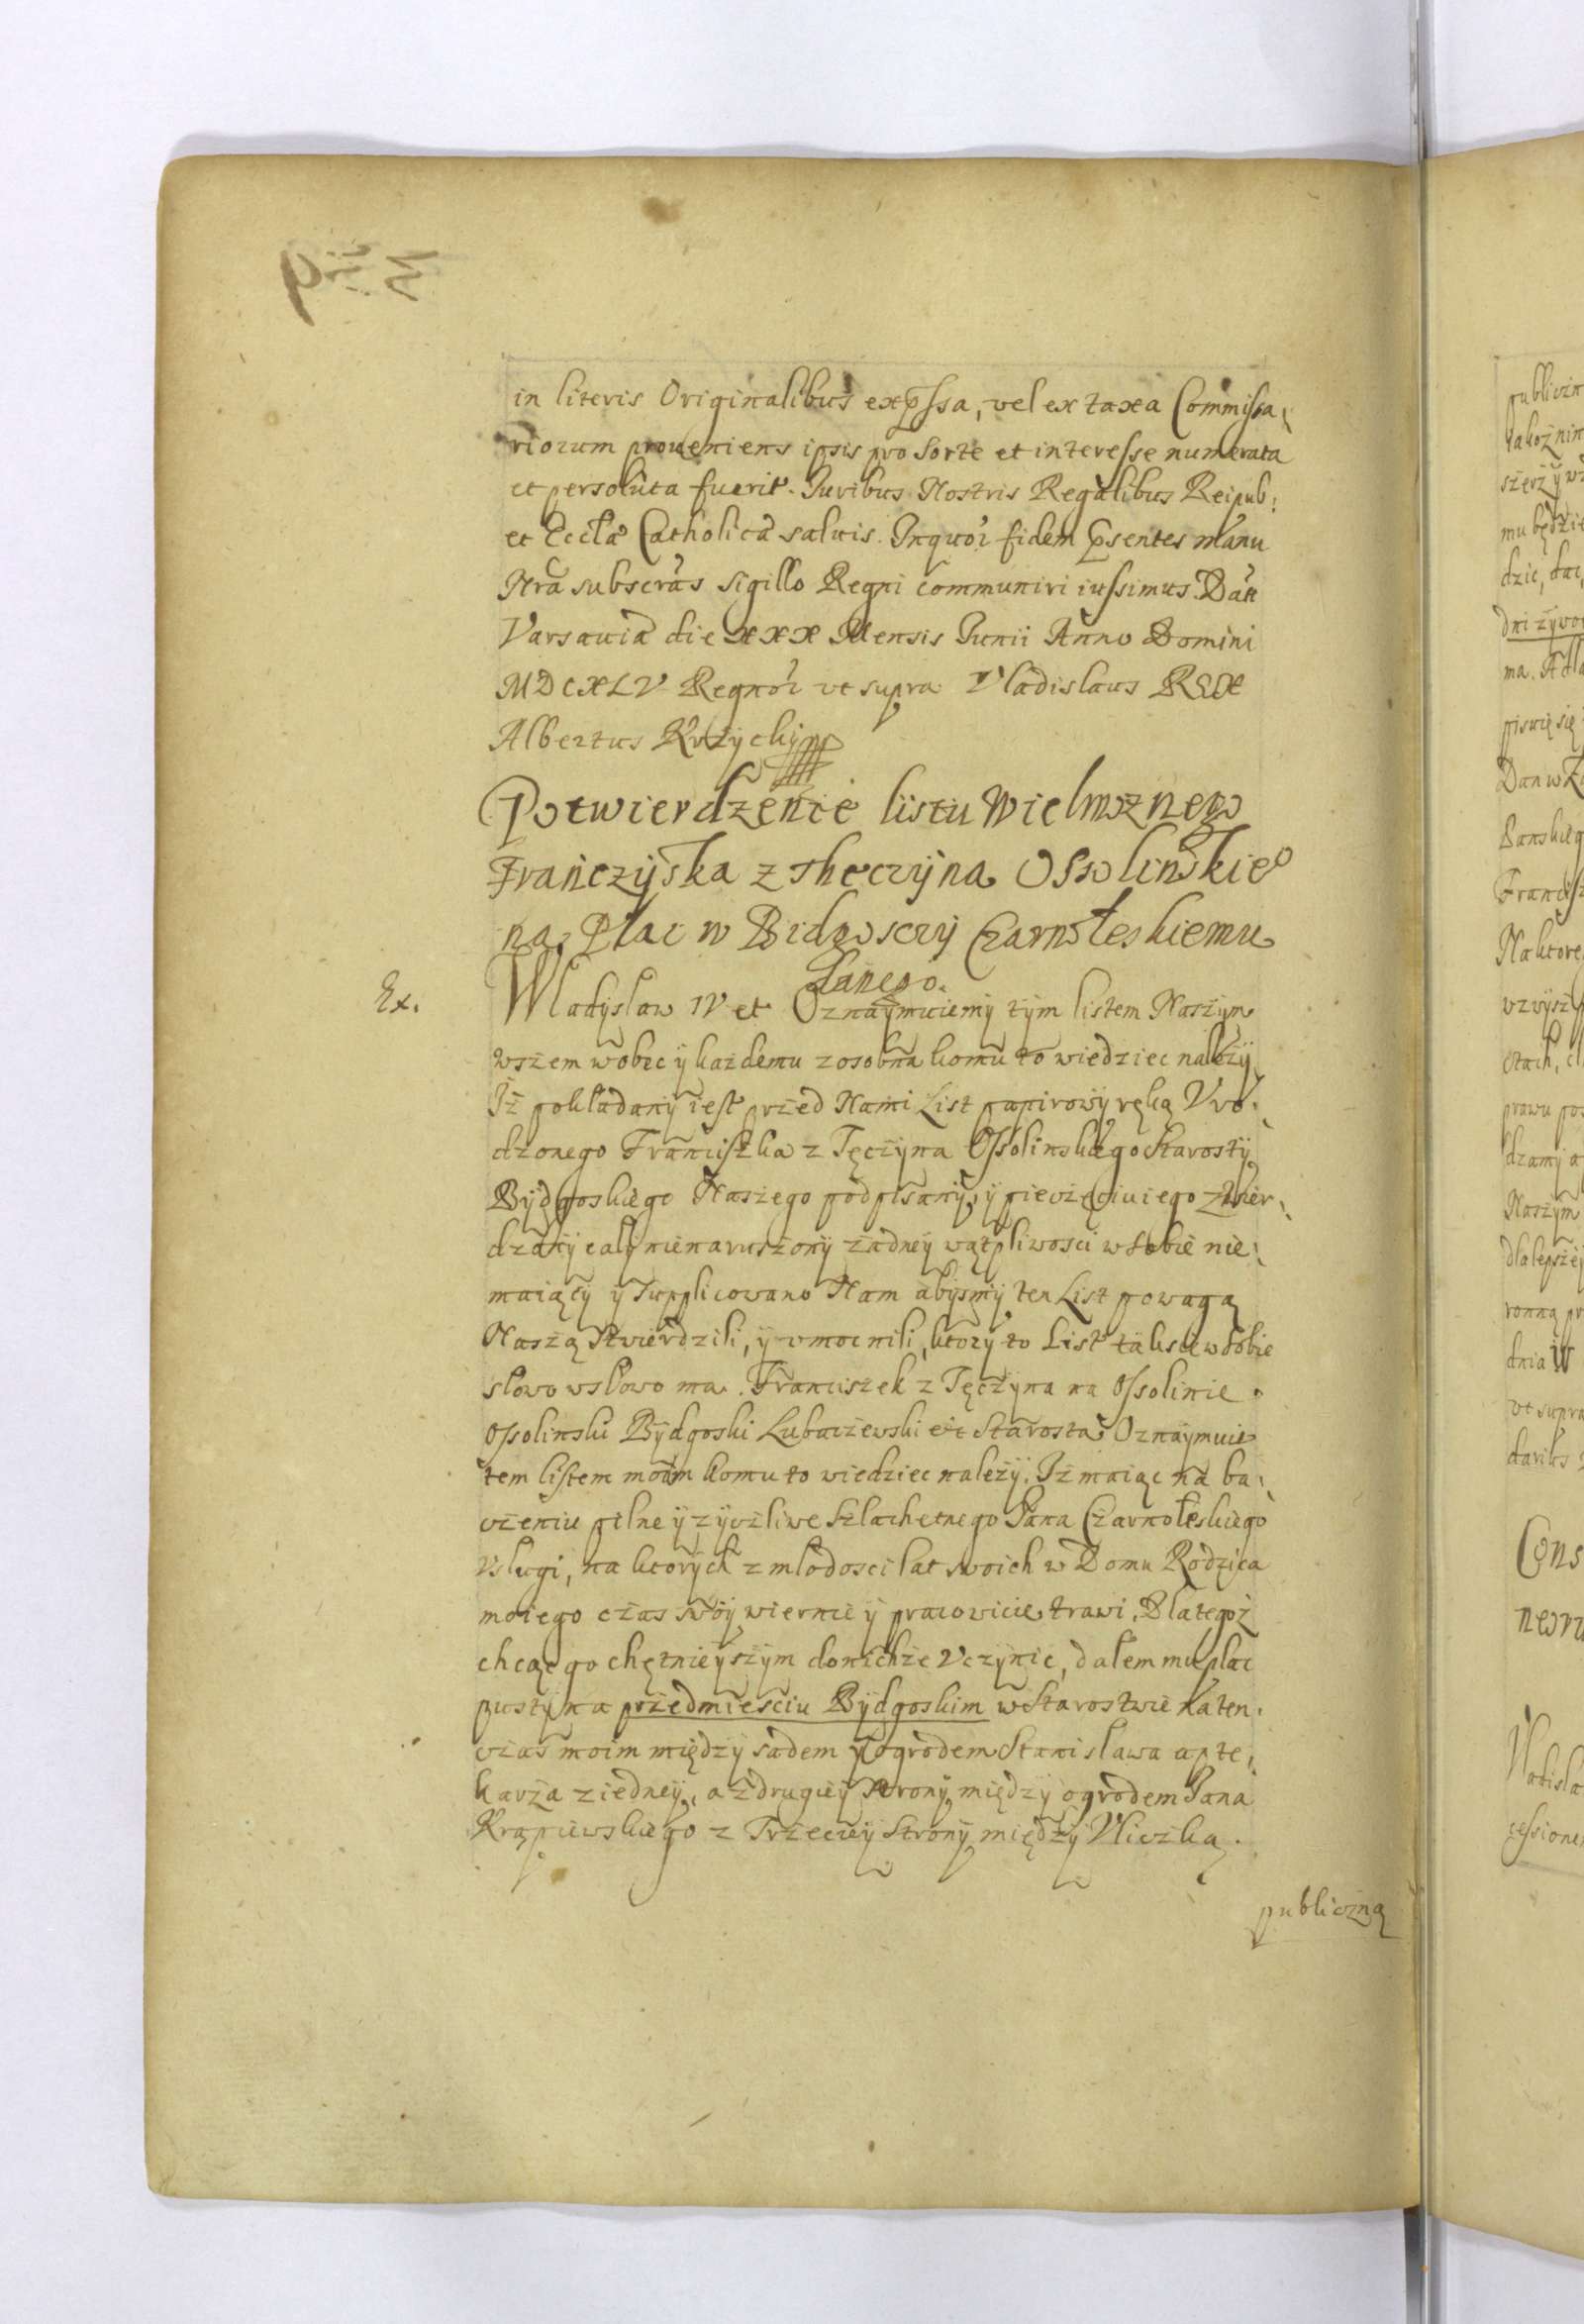 in literis Originalibus exp̃ssa, vel ex taxa Commissa,
riorum proueniens ipsis pro sorte et interesse numerata
et persoluta fuerit. Iuribus Nostris Regalibus Reipub:
et Eccłæ Catholicæ saluis. In quor̃ fidem p̃sentes manu
Nr̃a subscr̃as sigillo Regni communiri iussimus. Dañ
Varsauiæ die XXX Mensis Iunii Anno Domini
MDCXLV Regnor̃ vt supra Vladislaus REX
Albertus Krzycky
Potwierdzenie listu Wielmoznego
Franczyska z Theczyna Ossolinskieo
na Plac w Bidgosczy Czarnołeskiemu
danego.
Ex. Wladyslaw IV et Oznaymuiemy tym listem Naszym
wszem wobec y każdemu zosobna komu to wiedziec nalezy
Iż pokładany iest przed Nami List papirowy ręką Vro,
dzonego Franciszka z Tęczyna Ossolinskiego Starosty
Bydgoskiego Naszego podpisany, y pieczęcią iego ztwier,
dzony cały nienaruszony żadney wątpliwosci w sobie nie,
maiący y supplicowano Nam abysmy ten List powagą
Naszą stwierdzili, y vmocnili, ktory to List tak sie w sobie
słowo wsłowo ma. Franciszek z Tęczyna na Ossolinie
Ossolinski Bydgoski Lubaczewski etc Starosta Oznaymuie
tem listem moim komu to wiedziec należy. Iż maiąc na ba,
czeniu pilne y zyczliwe Szlachetnego Pana Czarnołeskiego
vslugi, na ktorych z mlodosci lat swoich w Domu Rodzica
moiego czas swoy wiernie y pracowicie trawi. Dlategoż
chcąc go chętnieyszym do nichże vczynic, dałem mu plac
pusty na przedmiesciu Bydgoskim w Starostwie naten,
czas moim między sadem y ogrodem Stanislawa apte,
karza z iedney, a z drugiey strony między ogrodem Pana
Krąpiewskiego z Trzeciey Strony między Vliczką
publiczną